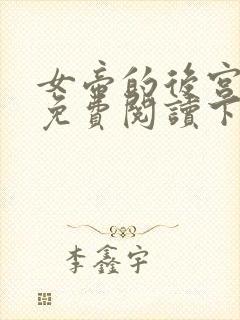 女帝的後宮
免費閱讀下
李鑫宇